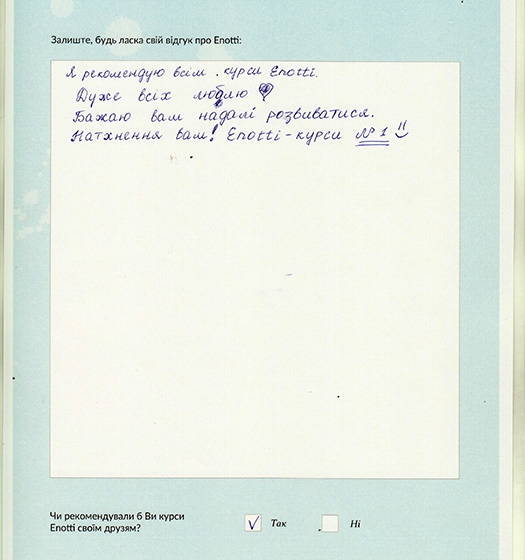 Залиште, будь ласка свій відгук про Enotti:
Я рекомендую всім . курси Enotti.
Дуже всіх люблю
Бажаю вам надалі розвиватися.
Натхнення вам! Enotti - курси №1
Чи рекомендували б Ви курси
Enotti своїм друзям?
Так
Ні